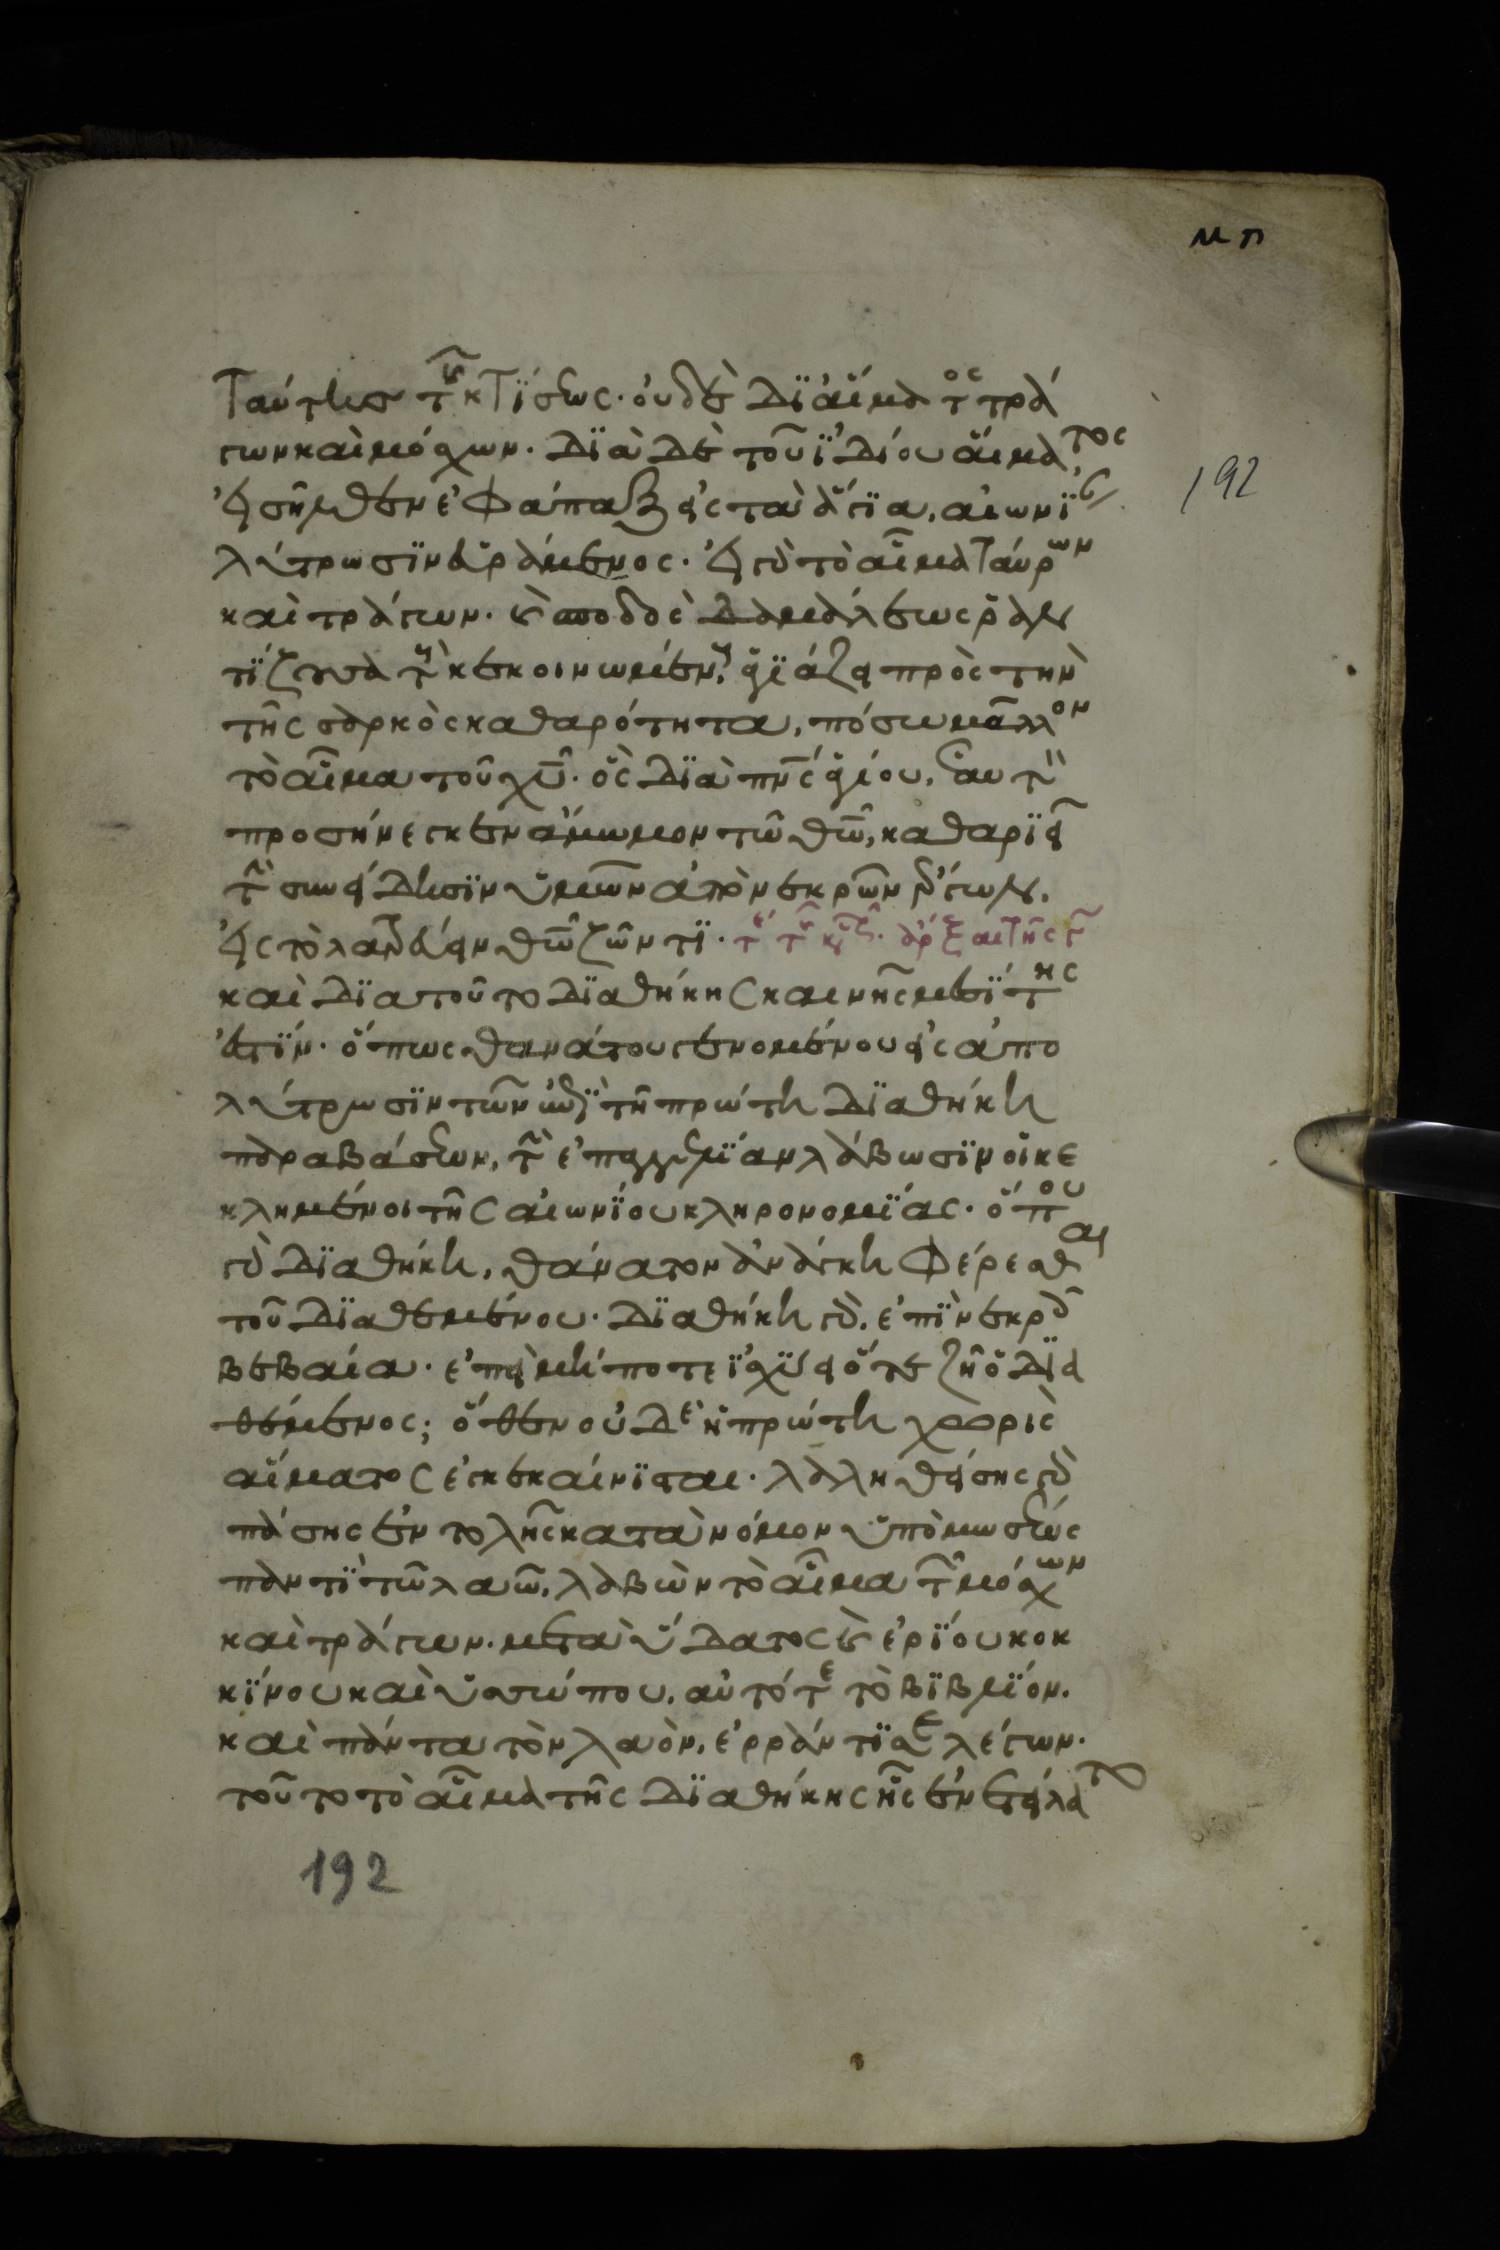 μ π
Ταύτης τῆς κτίσεως· οὐδὲ δι' αἵματος τρά
γων καὶ μόσχων· διὰ δὲ τοῦ ἰδίου αἵματος
εἰσῆλθεν ἐφάπαξ εἰς τὰ ἅγια, αἰωνίαν
192
λύτρωσιν εὑράμενος· εἰ γὰρ τὸ αἷμα ταύρων
καὶ τράγων· καὶ σποδὸς δαμάλεως ῥαν
τίζουσα τοὺς κεκοινωμένους, ἁγιάζει πρὸς τὴν
τῆς σαρκὸς καθαρότητα, πόσω μᾶλλον
τὸ αἷμα τοῦ χυ· ὃς διὰ πνς ἁγίου, ἑαυτὸν
προσήνεγκεν ἄμωμον τῶ θω, καθαριεῖ
τὴν συνείδησιν ὑμῶν ἀπὸ νεκρῶν ἔργων,
εἰς τὸ λατρεύειν θω ζῶντι·
καὶ διατοῦτο διαθήκης καινῆς μεσίτης
ἐστίν· ὅπως θανάτου γενομένου εἰς ἀπο
λύτρωσιν τῶν ἐπὶ τῆ πρώτη διαθήκη
παραβάσεων, τὴν ἐπαγγελίαν λάβωσιν οἱ κε
κλημένοι τῆς αἰωνίου κληρονομίας· ὅπου
γὰρ διαθήκη, θάνατον ἀνάγκη φέρεσθαι
τοῦ διαθεμένου· διαθήκη γὰρ, ἐπὶ νεκροῖς
βεβαία· ἐπεὶ μήποτε ἰσχύει ὅτε ζῆ ὁ δια
θέμενος; ὅθεν οὐδὲ ἡ πρώτη χωρὶς
αἵματος ἐγκεκαίνισται· λαληθείσης γὰρ
πάσης ἐντολῆς κατὰ νόμον ὑπὸ μωσέως
παντὶ τῶ λαῶ, λαβὼν τὸ αἷμα τῶν μόσχων
καὶ τράγων· μετὰ ὕδατος καὶ ἐρίου κοκ
κίνου καὶ ὑσσώπου, αὐτό τε τὸ βιβλίον,
καὶ πάντα τὸν λαὸν, ἐρράντισε λέγων·
τοῦτο τὸ αἷμα τῆς διαθήκης ἧς ἐνετείλατο
192